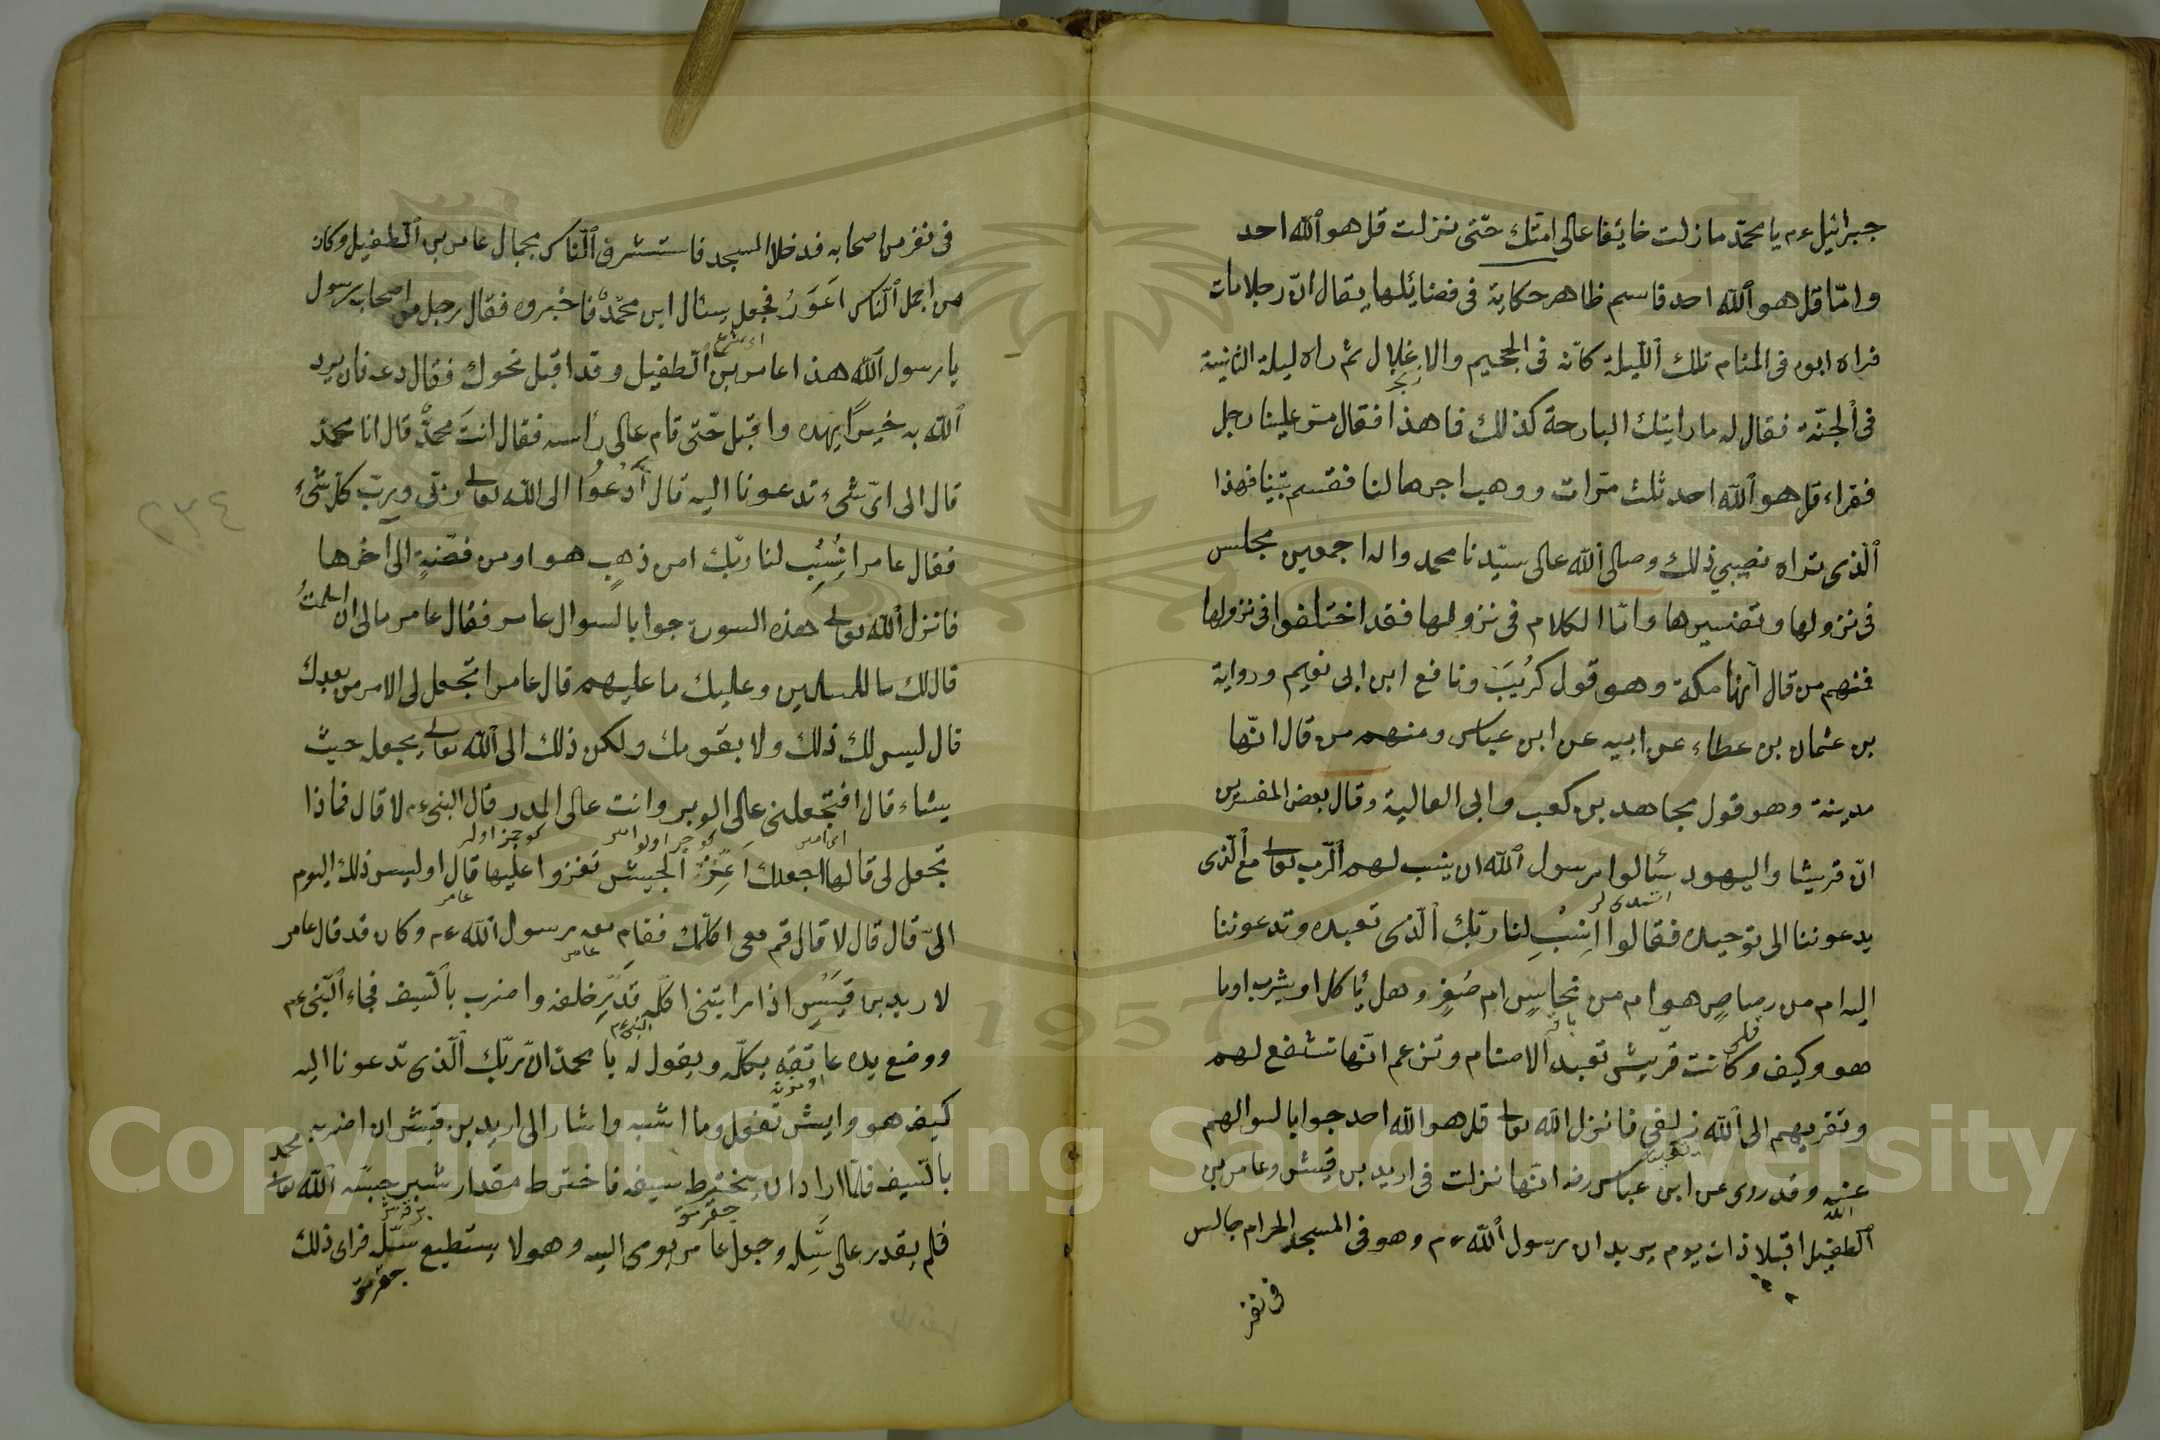 جبرائيل عم يا محمّد ما زلت خائيفا على امّتك حتّى نزلت قل هو الله احد
وامّا قل هو الله احد فاسم ظاهر حكاية فى فضائيلها يقال انّ رجلا مات
فراه ابوه فى المنام تلك اللّيلة كانّه فى الجحيم والاغلال ثم راه ليلة الثانية
فى الجنّة فقال له ما رايتك البارحة كذلك فما هذا فقال مرّ علينا رجل
فقراء قل هو الله احد ثلث مرّات ووهب اجرها لنا فقسم بيننا فهذا
الّذى تراه نصيبي ذلك وصلى الله على سيّدنا محمد واله اجمعين مجلس
فى نزولها وتفسيرها وامّا الكلام فى نزولها فقد اختلفوا فى نزولها
فمنهم من قال انّها مكة وهو قول كريب ونافع ابن ابى نعيم ورواية
بن عثمان بن عطاء عن ابيه عن ابن عباس ومنهم من قال انّها
مدينة وهو قول مجاهد بن كعب وابى العالية وقال بعض المفسرين
انّ قريشا واليهود سئالوا رسول الله ان ينسب لهم الرّب تعالى مع الّذى
يدعوننا الى توحيده فقالوا انسب لنا ربّك الّذى تعبده وتدعوننا
اليه ام من رصاص هو ام من نحاس ام صفر وهل يأكل او يشرب او ما
هو وكيف وكانت قريش تعبد الاصنام وتزعم انّها تشفع لهم
وتقربهم الى الله زلفى فانزل الله تعالى قل هو الله احد جوابا لسوالهم
عنه وقد روى عن ابن عباس رضه انّها نزلت فى اربد بن قيس وعامر بن
الطفيل اقبلا ذات يوم يريدان رسول الله عم وهو فى المسجد الحرام جالس
فى نفر
فى نفر من اصحابه فدخلا المسجد فاستشرف النّاس بجمال عامر بن الطفيل وكان
من اجمل النّاس اعور فجعل يسئال اين محمّد فاخبروه فقال رجل من اصحاب رسول
يا رسول الله هذا عامر بن الطفيل وقد اقبل نحوك فقال دعه فان يرد
الله به خيرًا يهده واقبل حتّى قام على رأسه فقال انت محمّد قال انا محمّد
قال الى اىّ شىء تدعونا اليه قال ادعوا الى الله تعالى ربّى وربّ كل شىء
فقال عامر انسب لنا ربّك امن ذهب هو او من فضّة الى اخرها
فانزل الله تعالى هذه السورة جوابا لسوال عامر فقال عامر ما لى ان اسلمت
قال لك ما للمسلمين وعليك ما عليهم قال عامر اتجعل لى الامر من بعدك
قال ليس لك ذلك ولا بقومك ولكن ذلك الى الله تعالى يجعله حيث
يشاء قال افتجعلنى على الوبر وانت على المدر قال النبى عم لا قال فماذا
تجعل لى قال اجعلك اعزز الجيش تغزوا عليها قال او ليس ذلك اليوم
الىّ قال قال لا قال قم معى اكلّمك فقام معه رسول الله عم وكان قد قال عامر
لاربد بن قيس اذا رايتنى اكلّمه فدر خلفه واضرب بالسّيف فجاء النّبى عم
ووضع يده عاتقه يكلّمه ويقول له يا محمد انّ ربّك الّذى تدعونا اليه
كيف هو وايش تفعل وما اشبه واشار الى اربد بن قيس ان اضربه محمد
بالسّيف فلمّا اراد ان يخترط سيفه فاخترط مقدار شبر حبسه الله تعالى
فلم يقدر على سلّه وجعل عامر يومى اليه وهو لا يستطيع سلّه فراى ذلك
٢٣٤
1957
Copyright © King Saud University